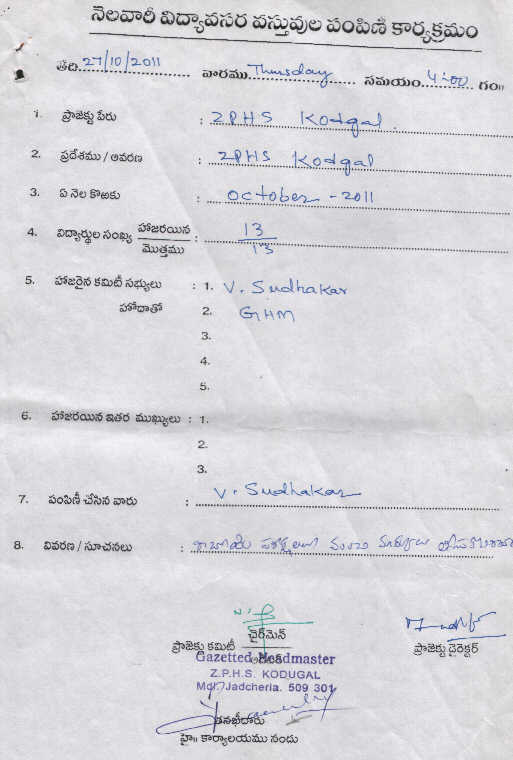 నెలవారీ విద్యావసర వస్తువుల పంపిణీ కార్యక్రమం
తేది 27/10/2011 వారము Thursday సమయం 4-00 గం॥
1. ప్రాజెక్టు పేరు : ZPHS Kodgal.
2. ప్రదేశము / ఆవరణ : ZPHS Kodgal
3. ఏ నెల కొఱకు : October - 2011
4. విద్యార్థుల సంఖ్య హాజరయిన : 13
మొత్తము 13
5. హాజరైన కమిటీ సభ్యులు : 1. V. Sudhakar
హోదాతో 2. GHM
3.
4.
5.
6. హాజరయిన ఇతర ముఖ్యులు : 1.
2.
3.
7. పంపిణీ చేసిన వారు : V. Sudhakar
8. వివరణ / సూచనలు :
ఛైర్‌మెన్
ప్రాజెక్టు కమిటీ ప్రాజెక్టు డైరెక్టర్
Gazetted Headmaster
Z.P.H.S. KODUGAL
Mdl: Jadcherla. 509 301
తనిఖీదారు
హై॥ కార్యాలయము నందు